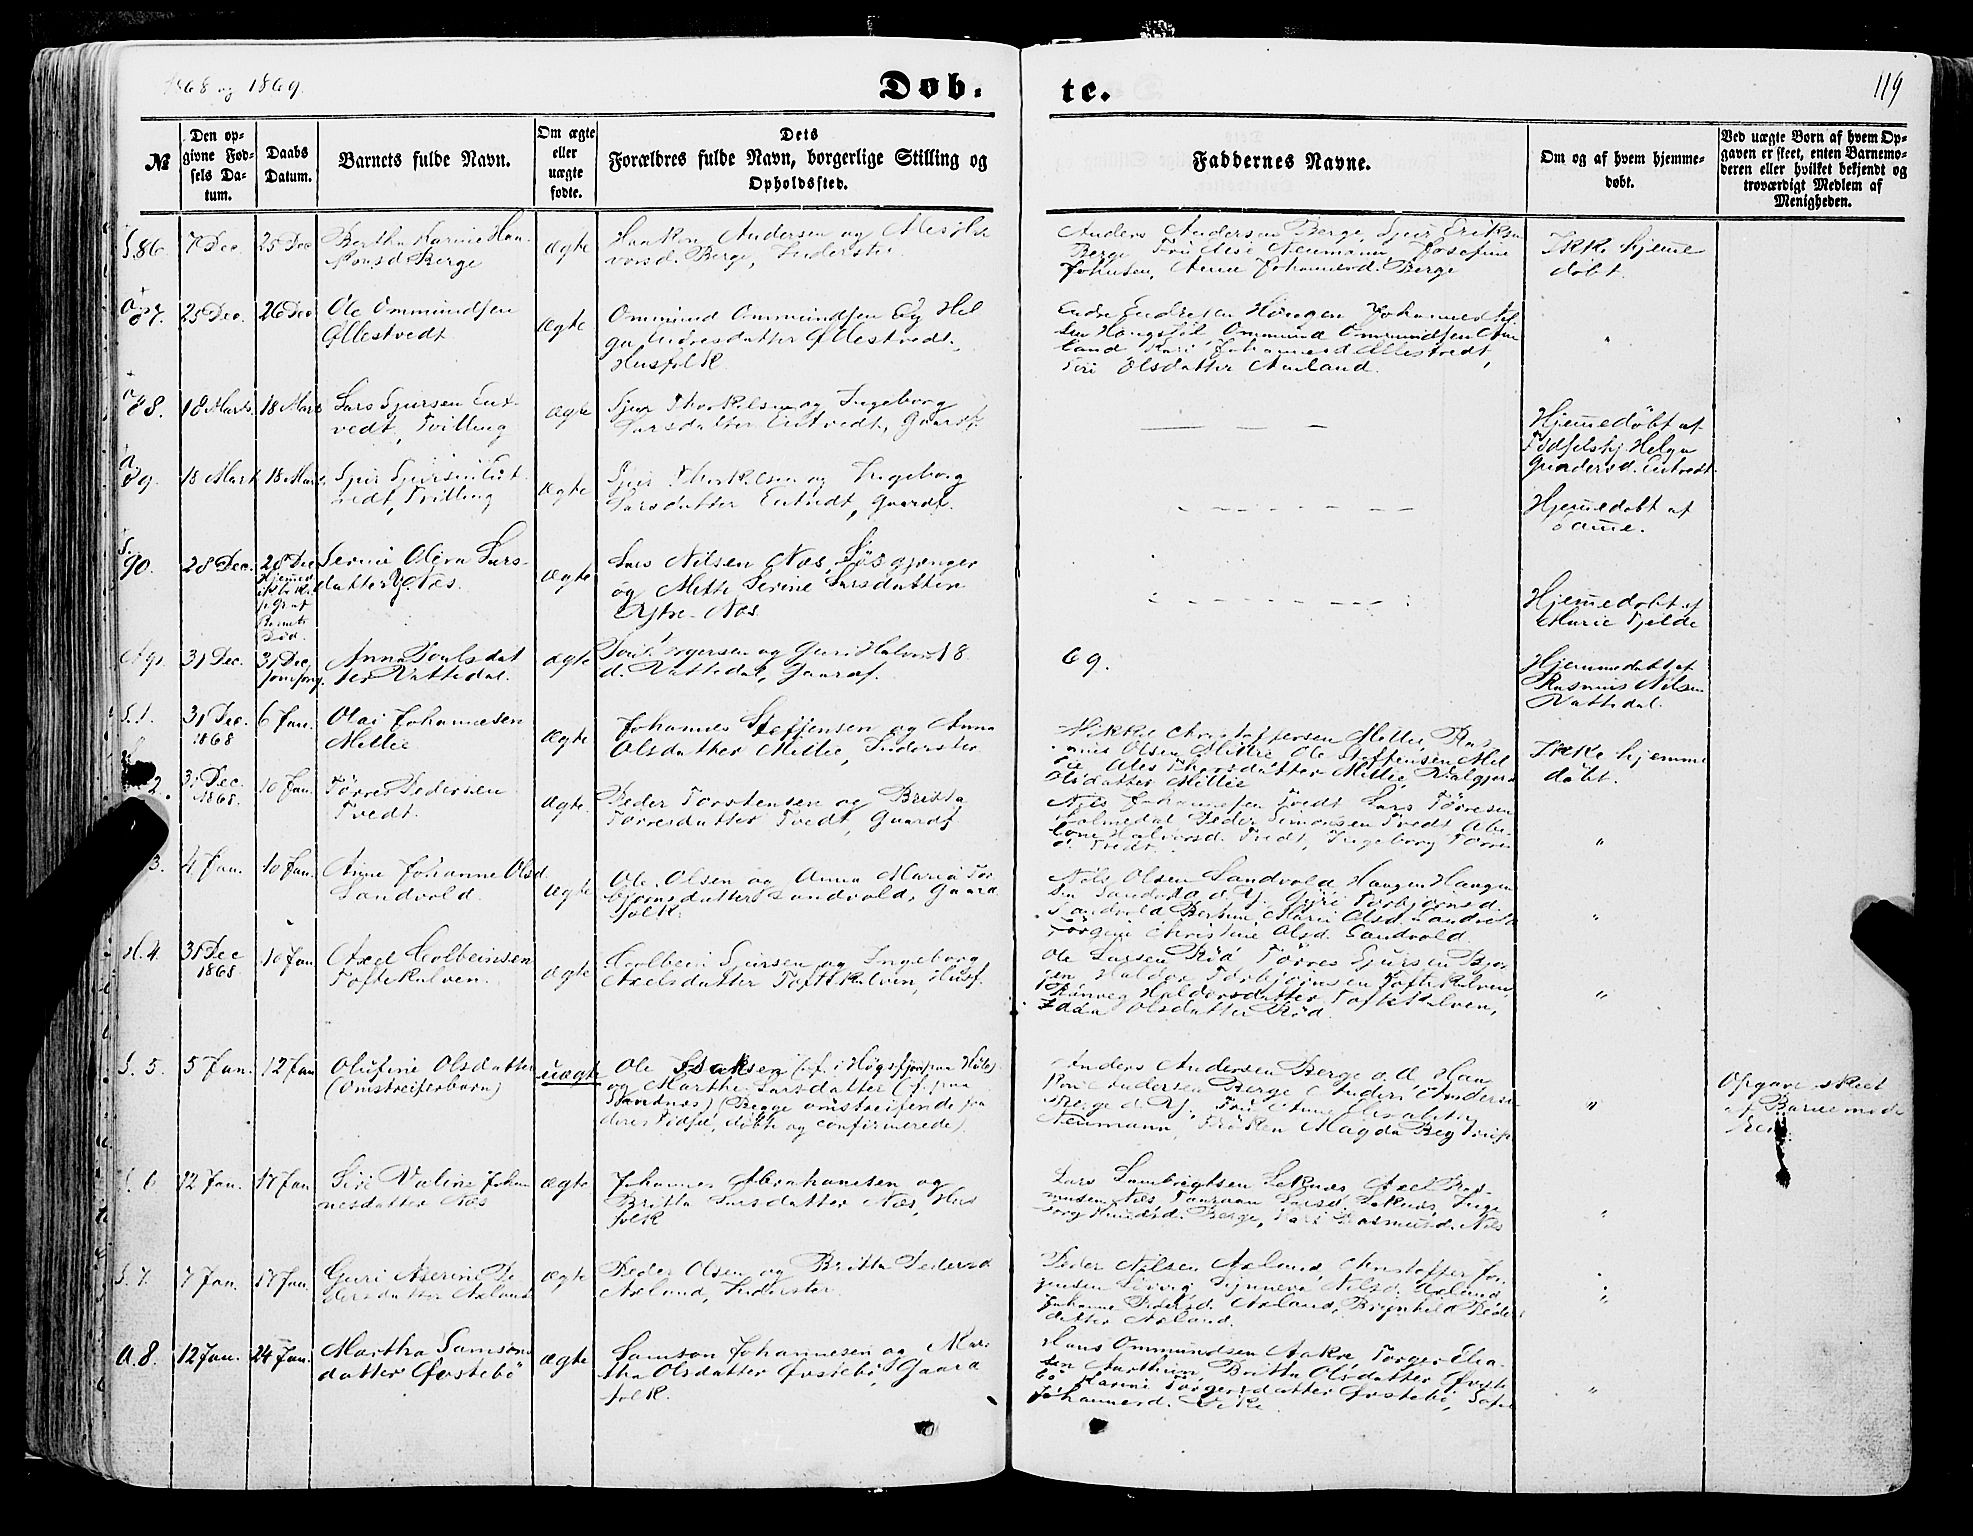 1868 og 1869.
Døb-
te.
119
№
Den op-
givne Fød-
sels Da-
tum.
Daabs
Datum.
Barnets fulde Navn.
Om ægte
eller
uægte
fødte.
Dets
Forældres fulde Navn, borgerlige Stilling og
Opholdssted.
Faddernes Navne.
Om og af hvem hjemme-
døbt.
Ved uægte Børn af hvem Op-
gaven er skeet, enten Barnemo-
deren eller hvilket bekjendt og
troværdigt Medlem af
Menigheden.
86. 7 Dec. 25 Dec
Bertha Karine Haa-
konsd. Berge
ægte
Haakon Andersen og
Berge, Inderster
Anders Andersen Berge, Sjur Eriksen
Berge Neumann, Josefine
Johnsen, Anna Johannesd. Berge
Ikke hjemme
døbt.
87. 25 Dec. 26 Dec
Ole Ommundsen
Øllestvedt
ægte
Ommund Ommundsen og Hel
ga Endresdatter Øllestvedt,
Husfolk
Endre Endresen Haugen Johannes
Ommund Ommundsen
land Kari Johannesd Øllestvedt,
Siri Olsdatter Aaland.
"
88. 18 Marts 18 Marts
Lars Sjursen Ent-
vedt, Tvilling
ægte
Sjur Thorkelsen og Ingeborg
Larsdatter Entvedt, Gaardf.
Hjemmedøbt af
Fødselshj. Helga
Gundersd. Entvedt
89. 18 Marts 18 Marts
Sjur Sjursen Ent-
vedt, Tvilling
ægte
Sjur Thorkelsen og Ingeborg
Larsdatter Entvedt, Gaardf.
Hjemmedøbt af
Samme.
90. 28 Dec. 28 Dec
Serine Oliva Lars-
datter Y. Næs.
ægte
Lars Nilsen Næs, Løsgjænger
og Mette Serine Larsdatter
Ytre-Næs
Hjemmedøbt af
Marie Tjelde
91. 31 Dec. 31 Dec,
Anna Poulsdat
ter Vattedal.
ægte
Poul Torgersen og Guri Halvor
d. Vattedal, Gaardf.
18
69.
Hjemmedøbt af
Rasmus Nilsen
Vattedal.
S. 1. 31 Dec. 1868 6 Jan.
Olai Johannesen
Mellie
ægte
Johannes Steffensen og Anna
Olsdatter Mellie, Inderster
Mikkel Christoffersen Mellie, Ras
mus Olsen Mellie Ole Steffensen Mel
lie Thorsdatter Mellie
Olsdatter Mellie
Ikke hjemme
døbt.
2. 31 Dec. 1868. 10 Jan.
Tørres Pedersen
Tvedt.
ægte
Peder Torstensen og Britta
Tørresdatter Tvedt, Gaardf
Nils Johannesen Tvedt Lars Tørresen
Holmedal Peder Simonsen Tvedt, Abe
lone Halvorsd. Tvedt, Ingeborg Tørres
d. Tvedt.
"
3. 4 Jan. 10 Jan.
Anne Johanne Olsd.
Sandvold.
ægte
Ole Olsen og Anna Maria Tor
bjørnsdatter Sandvold, Gaard
folk.
Nils Olsen Sandvold Haagen Haagen
sen Sandvold d. Y. Guri Torbjørnsd.
Sandvold Berthine Marie Olsd. Sandvold
Jørgine Christine Olsd. Sandvold.
"
H. 4. 31 Dec 1868 10 Jan
Axel Colbeinsen
Toftekalven.
ægte
Colbein Sjursen og Ingeborg
Axelsdatter Toftekalven, Husf.
Ole Larsen Rød Tørres Sjursen Bjor
gen Haldor Torbjørnsen Toftekalven,
Rønveg Haldorsdatter Toftekalven,
Olsdatter Rød.
"
S. 5. 5 Jan. 12 Jan
Olufine Olsdatter
(Omstreiferbarn)
uægte
Ole Isaksen (f. i Høgsfjord paa Høle)
og Marthe Larsdatter (f. paa
Sandnæs) (Begge omstreifende fra
deres Fødsel, døbte og confirmerede)
Anders Andersen Berge d. Æ. Haa
kon Andersen Berge Anders Andersen
Berge d. Y. Fru Anne Elisabeth
Neumann, Frøken Magda Begtrup
"
Opgave skeet
af Barnemode
ren.
S. 6. 12 Jan. 17 Jan.
Siri Valine Johan
nesdatter Næs
ægte
Johannes Abrahamsen og
Britta Larsdatter Næs, Hus
folk
Lars Lambrigtsen Leknæs, Axel Ras-
musen Næs, Larsd. Leknæs, Inge
borg Knudsd. Berge, Kari Rasmusd. Næs
"
S. 7. 7 Jan. 17 Jan.
Guri Aserine Pe
dersdatter Axland
ægte
Peder Olsen og Britta Pedersd
Axland, Inderster.
Peder Nilsen Axland, Christoffer Jør
gensen Synneva Nilsd. Axland
Johanne Pedersd. Axland, Brynhild Peders
datter Axland.
"
A. 8. 12 Jan. 24 Jan.
Martha Samsons
datter Øvstebø
ægte
Samson Johannesen og Mar
tha Olsdatter Øvstebø, Gaard
folk.
Hans Ommundsen Aakre Torger Elia
sen Aartheim, Britta Olsdatter Øvste
bø Karine Torgersdatter Øvstebø, Sofie
Johannesd.
"